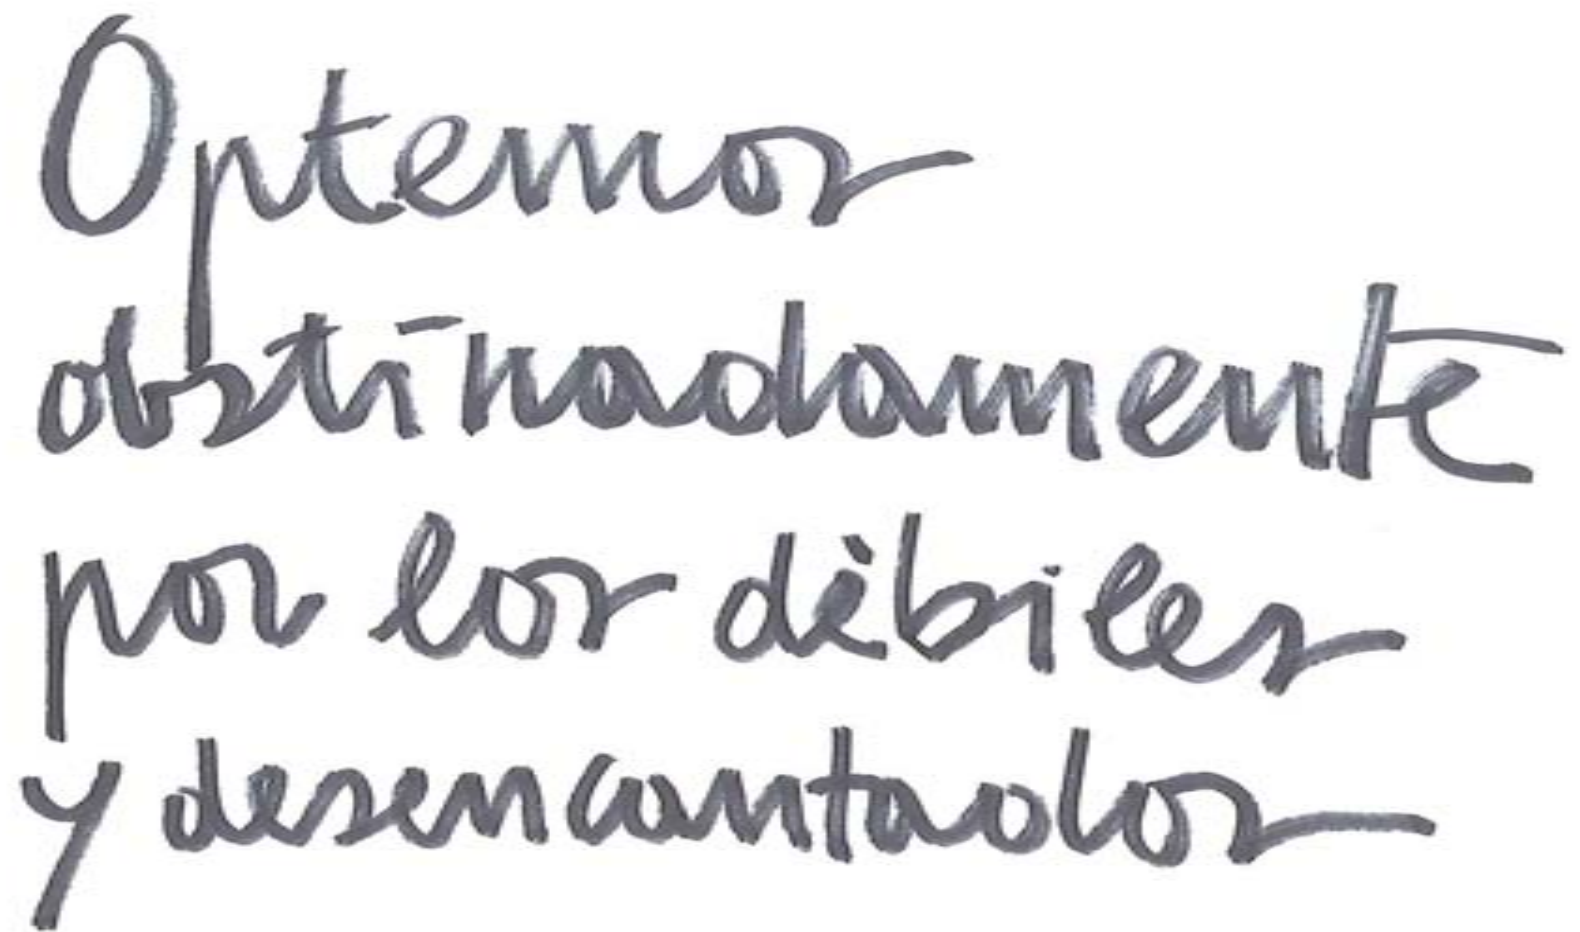 Optemos
obstinadamente
por los dèbiles
y desencantados